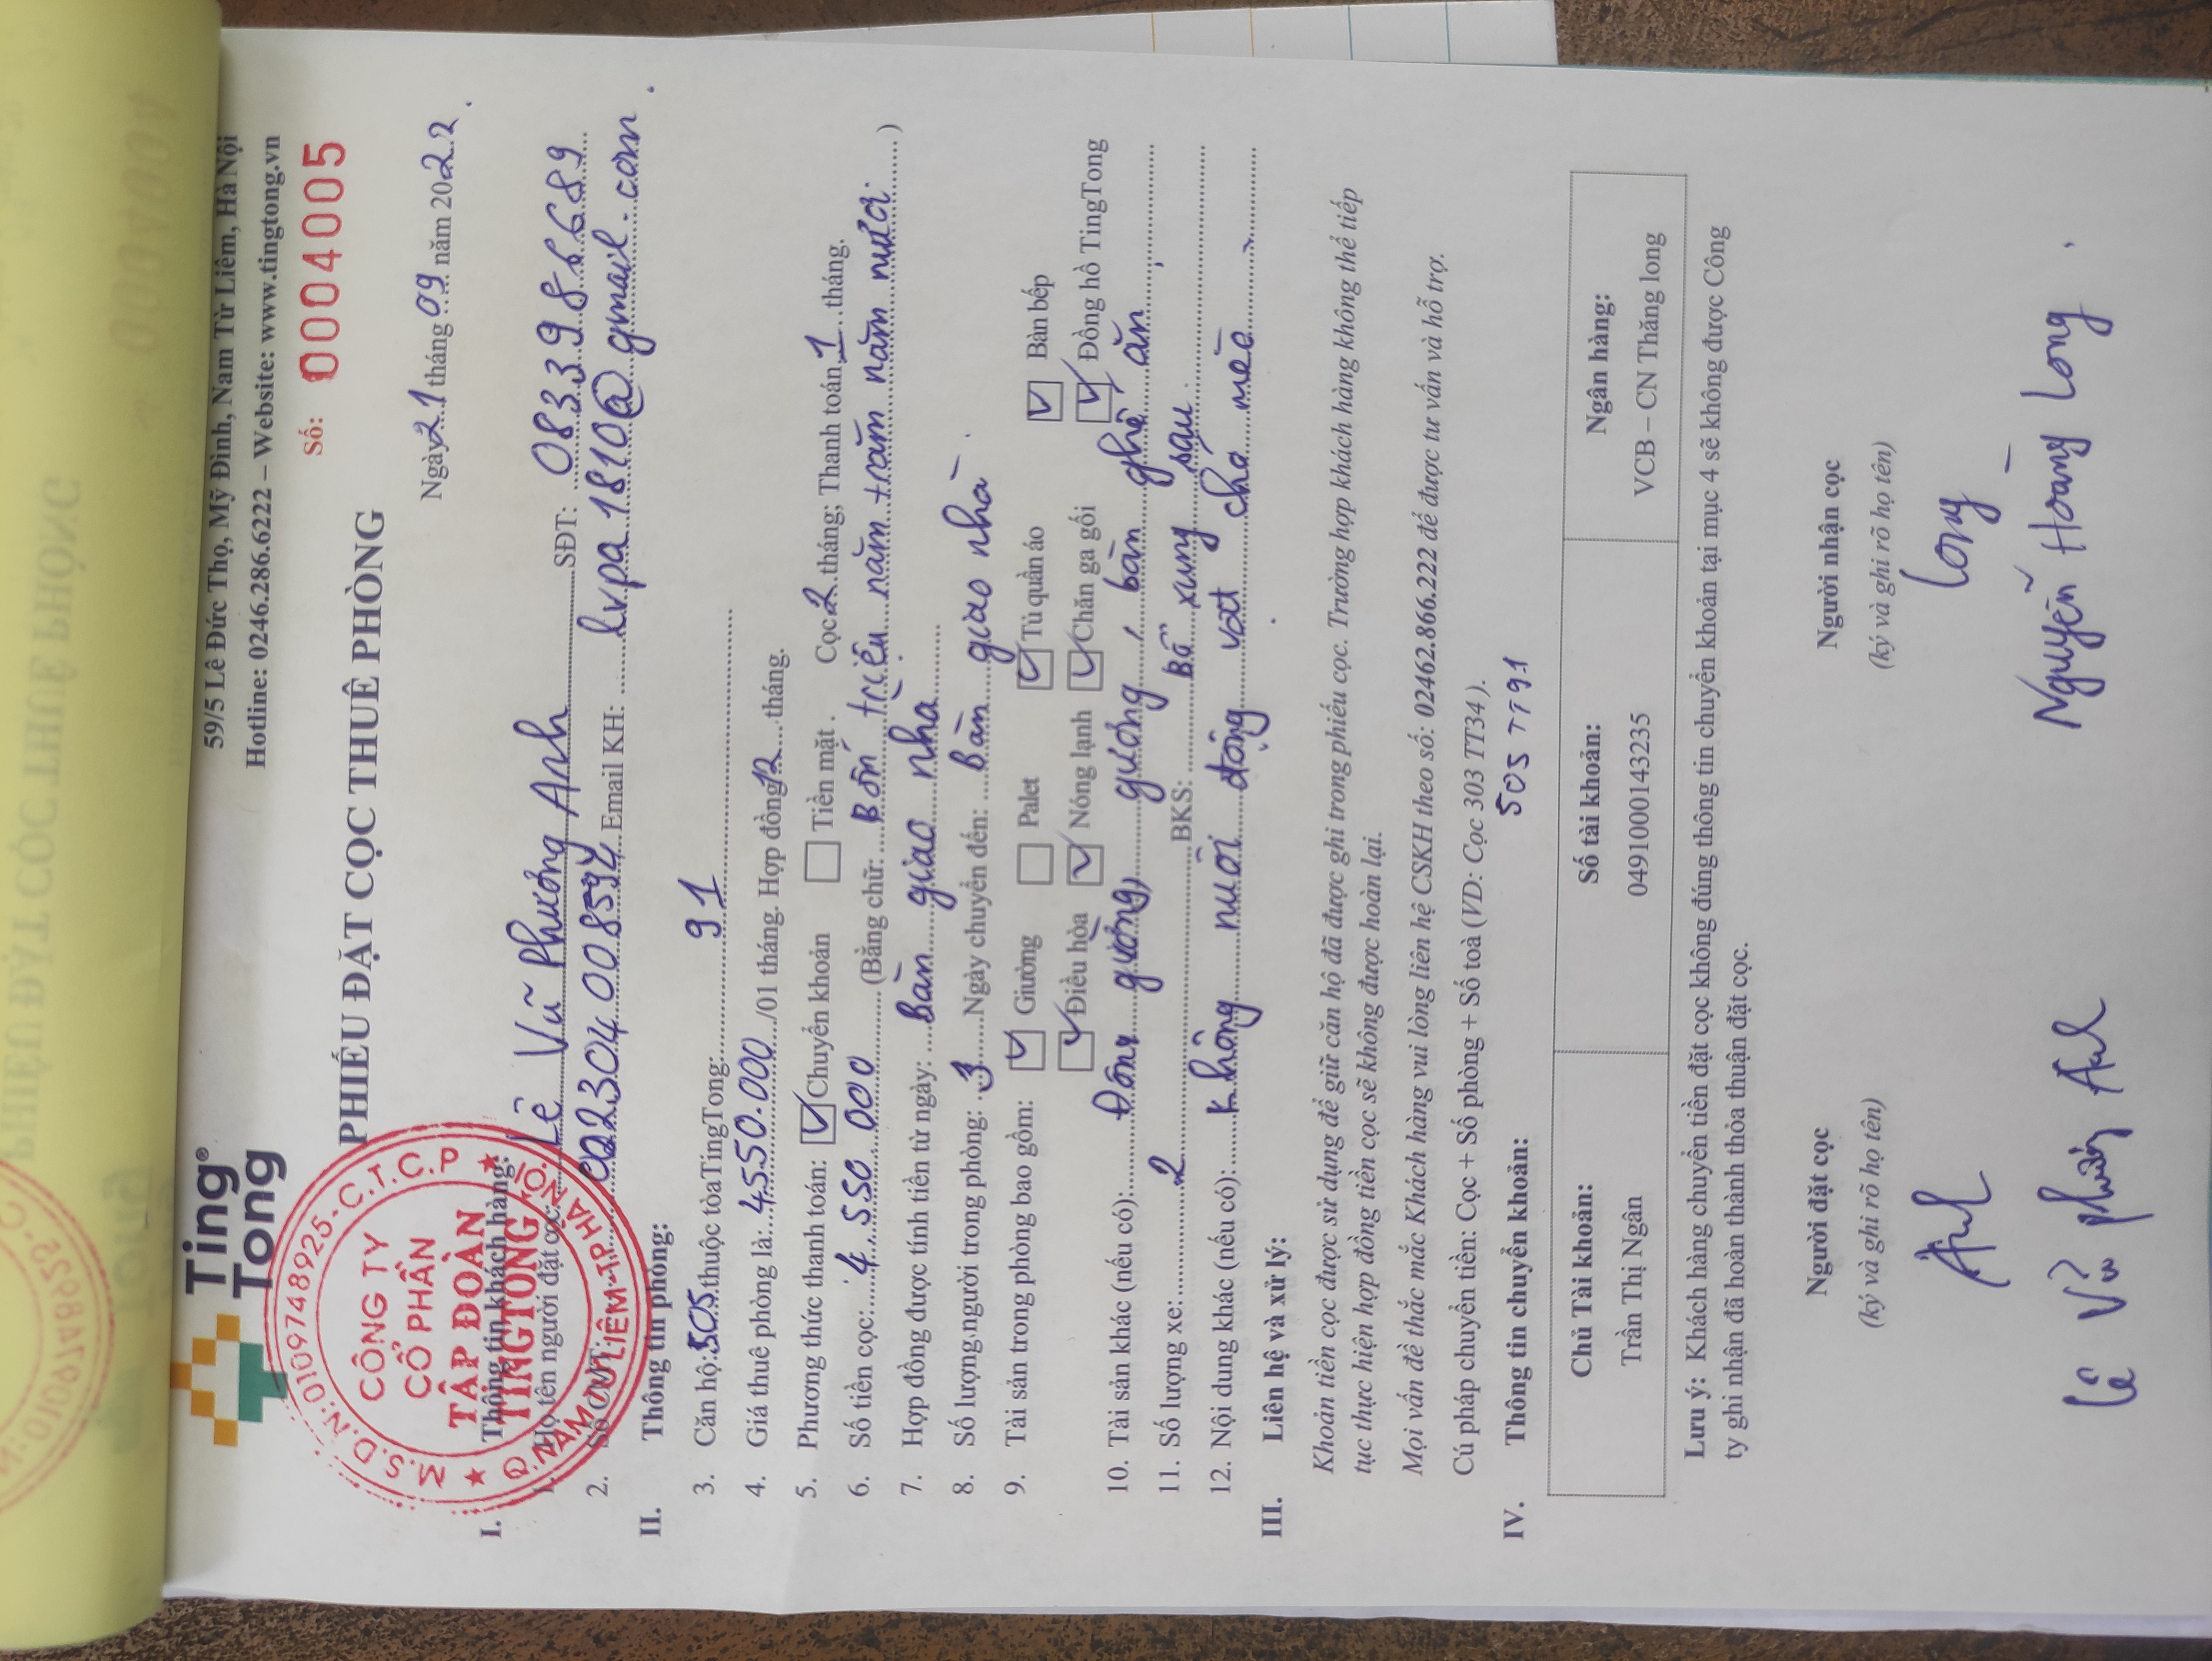 Ting
Tong®
59/5 Lê Đức Thọ, Mỹ Đình, Nam Từ Liêm, Hà Nội
Hotline: 0246.286.6222 – Website: www.tingtong.vn
Số: 0004005
PHIẾU ĐẶT CỌC THUÊ PHÒNG
Ngày 21 tháng 09 năm 2022.
M.S.D.N:0109748925-C.T.C.P
CÔNG TY
CỔ PHẦN
TẬP ĐOÀN
TINGTONG
Q.NAM TỪ LIÊM-TP.HÀ NỘI
I. Thông tin khách hàng:
1. Họ tên người đặt cọc: Lê Vũ Phương Anh SĐT: 0833986689
2. Số CMT: Email KH: lvpa1810@gmail.com
II. Thông tin phòng:
3. Căn hộ: 505 thuộc tòa TingTong: 91
4. Giá thuê phòng là: 4.550.000 /01 tháng. Hợp đồng 12 tháng.
5. Phương thức thanh toán: ☑ Chuyển khoản ☐ Tiền mặt . Cọc 2 tháng; Thanh toán 1 tháng.
6. Số tiền cọc: 4.550 000 (Bằng chữ: Bốn triệu năm trăm năm mươi )
7. Hợp đồng được tính tiền từ ngày: Bàn giao nhà
8. Số lượng người trong phòng: 3 Ngày chuyển đến: Bàn giao nhà .
9. Tài sản trong phòng bao gồm: ☑ Giường ☐ Palet ☑ Tủ quần áo ☑ Bàn bếp
☑ Điều hòa ☑ Nóng lạnh ☑ Chăn ga gối ☑ Đồng hồ TingTong
10. Tài sản khác (nếu có): giường, gương, bàn ghế ăn,
11. Số lượng xe: 2 BKS: Bổ xung sau.
12. Nội dung khác (nếu có): không nuôi động vật chó mèo
III. Liên hệ và xử lý:
Khoản tiền cọc được sử dụng để giữ căn hộ đã được ghi trong phiếu cọc. Trường hợp khách hàng không thể tiếp
tục thực hiện hợp đồng tiền cọc sẽ không được hoàn lại.
Mọi vấn đề thắc mắc Khách hàng vui lòng liên hệ CSKH theo số: 02462.866.222 để được tư vấn và hỗ trợ.
Cú pháp chuyển tiền: Cọc + Số phòng + Số toà (VD: Cọc 303 TT34).
505 TT91
IV. Thông tin chuyển khoản:
Chủ Tài khoản: Số tài khoản: Ngân hàng:
Trần Thị Ngân 0491000143235 VCB – CN Thăng long
Lưu ý: Khách hàng chuyển tiền đặt cọc không đúng thông tin chuyển khoản tại mục 4 sẽ không được Công
ty ghi nhận đã hoàn thành thỏa thuận đặt cọc.
Người đặt cọc Người nhận cọc
(ký và ghi rõ họ tên) (ký và ghi rõ họ tên)
Anh Long
Lê Vũ Phương Anh Nguyễn Hoàng Long